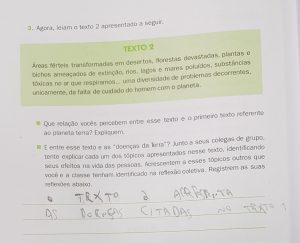 3. Agora, leiam o texto 2 apresentado a seguir.
TEXTO 2
Áreas férteis transformadas em desertos, florestas devastadas, plantas e
bichos ameaçados de extinção, rios, lagos e mares poluídos, substâncias
tóxicas no ar que respiramos... uma diversidade de problemas decorrentes,
unicamente, da falta de cuidado do homem com o planeta.
Que relação vocês percebem entre esse texto e o primeiro texto referente
ao planeta terra? Expliquem.
E entre esse texto e as "doenças da terra"? Junto a seus colegas de grupo,
tente explicar cada um dos tópicos apresentados nesse texto, identificando
seus efeitos na vida das pessoas. Acrescentem a esses tópicos outros que
você e a classe tenham identificado na reflexão coletiva. Registrem as suas
reflexões abaixo.
O TEXTO 2
AS DOENÇAS CITADAS NO TEXTO 1